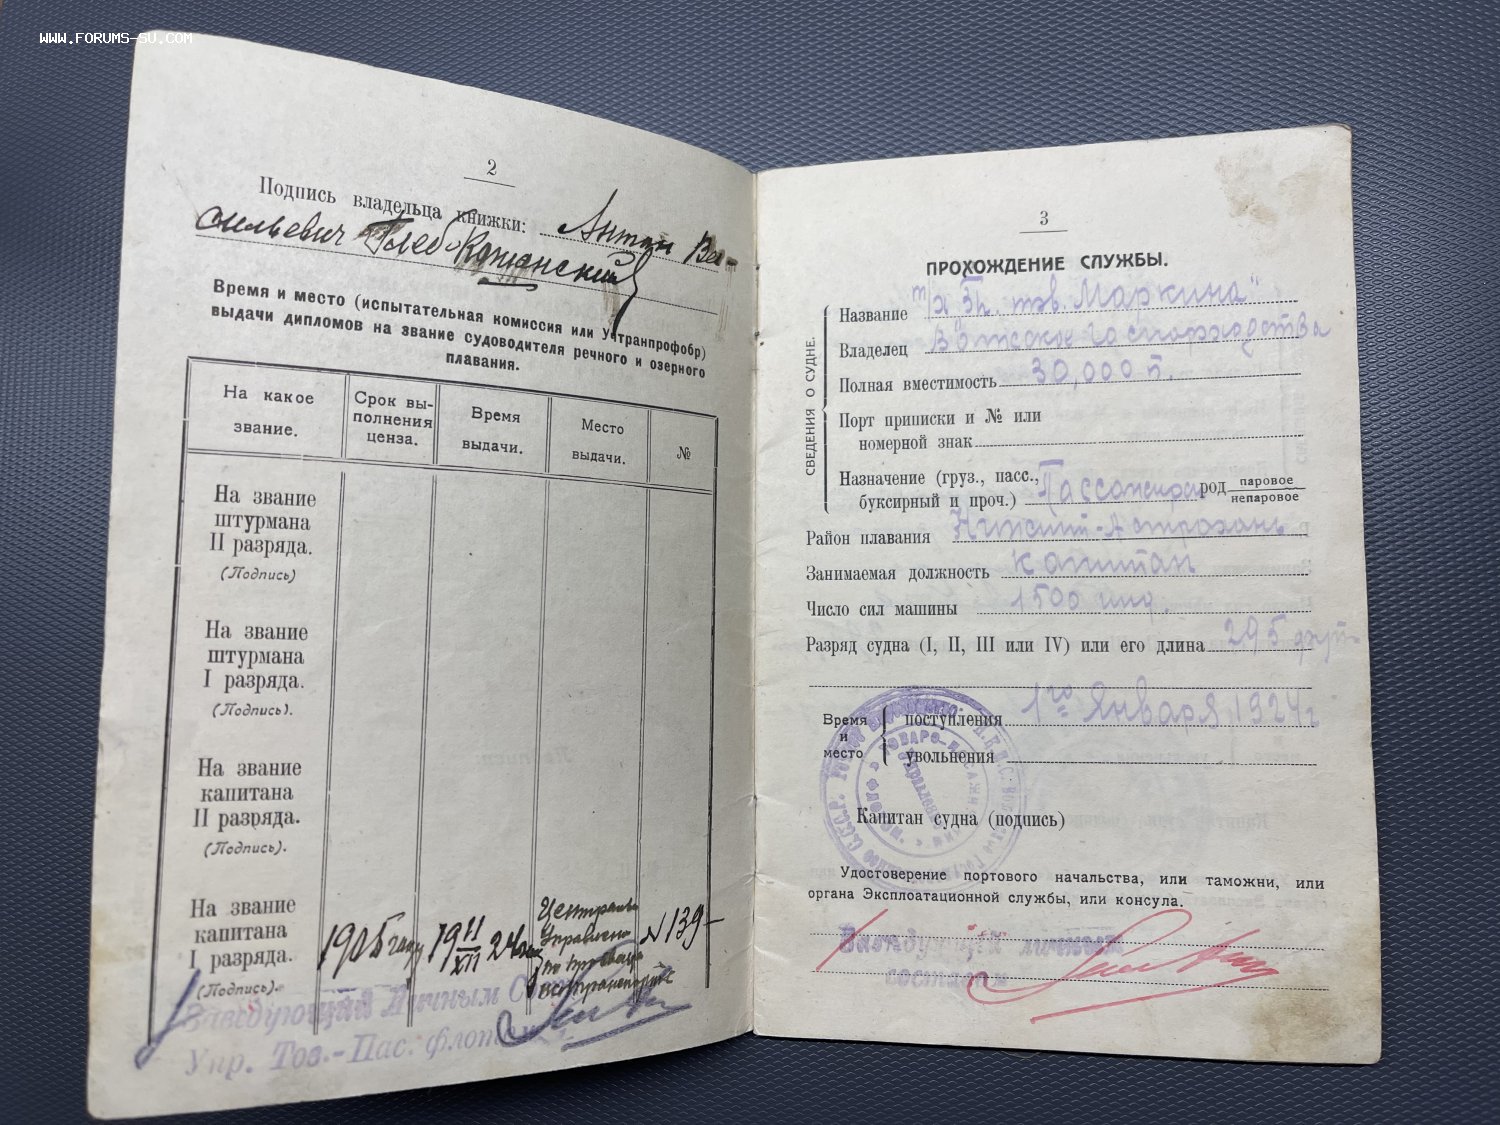 WWW.FORUMS-SU.COM
2
Подпись владельца книжки: Антон Ва-
сильевич Глеб-Кошанский
Время и место (испытательная комиссия или Учтранпрофобр)
выдачи дипломов на звание судоводителя речного и озерного
плавания.
На какое звание.
Срок выполнения ценза.
Время выдачи.
Место выдачи.
№
На звание
штурмана
II разряда.
(Подпись)
На звание
штурмана
I разряда.
(Подпись).
На звание
капитана
II разряда.
(Подпись).
На звание
капитана
I разряда.
(Подпись).
1905 году
19 11/XII 24
Управлен
по
№ 139
Заведующий Личным
Упр. Тов.-Пас. флот
3
ПРОХОЖДЕНИЕ СЛУЖБЫ.
СВЕДЕНИЯ О СУДНЕ.
Название т/х тов. Маркина"
Владелец Волжское Госпароходства
Полная вместимость 30,000 п.
Порт приписки и № или
номерной знак
Назначение (груз., пасс.,
буксирный и проч.) Пассажирск род паровое
непаровое
Район плавания Нижний-Астрахань
Занимаемая должность капитан
Число сил машины 1500 инд.
Разряд судна (I, II, III или IV) или его длина 295 фут
Время и место
поступления 1го Января 1924 г
увольнения
Капитан судна (подпись)
Удостоверение портового начальства, или таможни, или
органа Эксплоатационной службы, или консула.
Заведующий личным
составом